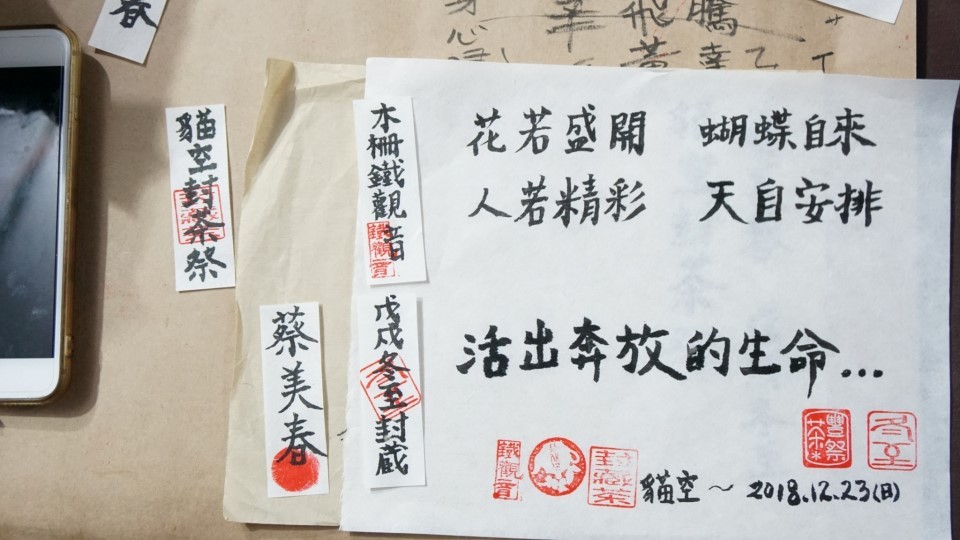 春
身心
飛黃
騰幸
貓空封茶祭
封藏茶
木柵鐵觀音
鐵觀音
蔡美春
戊戌冬至封藏
冬至
花若盛開 蝴蝶自來
人若精彩 天自安排
活出奔放的生命...
豐祭茶
冬至
鐵觀音
封藏茶
貓空~2018.12.23(日)